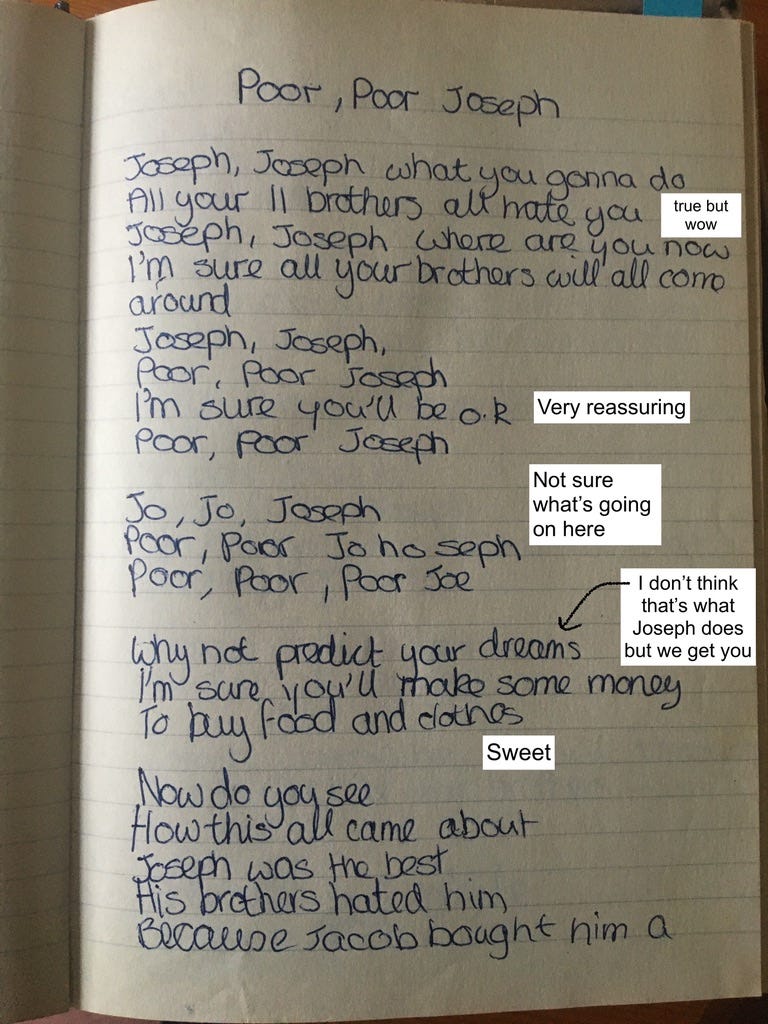 Poor, Poor Joseph
Joseph, Joseph what you gonna do
All your 11 brothers all hate you
true but
wow
Joseph, Joseph where are you now
I'm sure all your brothers will all come
around
Joseph, Joseph,
Poor, Poor Joseph
I'm sure you'll be o.k
Very reassuring
Poor, poor Joseph
Jo, Jo, Joseph
Not sure
what's going
on here
Poor, Poor Jo ho seph
Poor, Poor, Poor Joe
I don't think
that's what
Joseph does
but we get you
Why not predict your dreams
I'm sure you'll make some money
To buy food and clothes
Sweet
Now do you see
How this all came about
Joseph was the best
His brothers hated him
Because Jacob bought him a